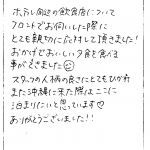 ホテル周辺の飲食店について
フロントでお伺いした際に
とても親切に応対して頂きました!
おかげでおいしい夕食を食べる
事ができました☺
スタッフの人柄の良さにとてもひかれ
また沖縄に来た際はここに
泊まりたいと思います♡
ありがとうございました!!